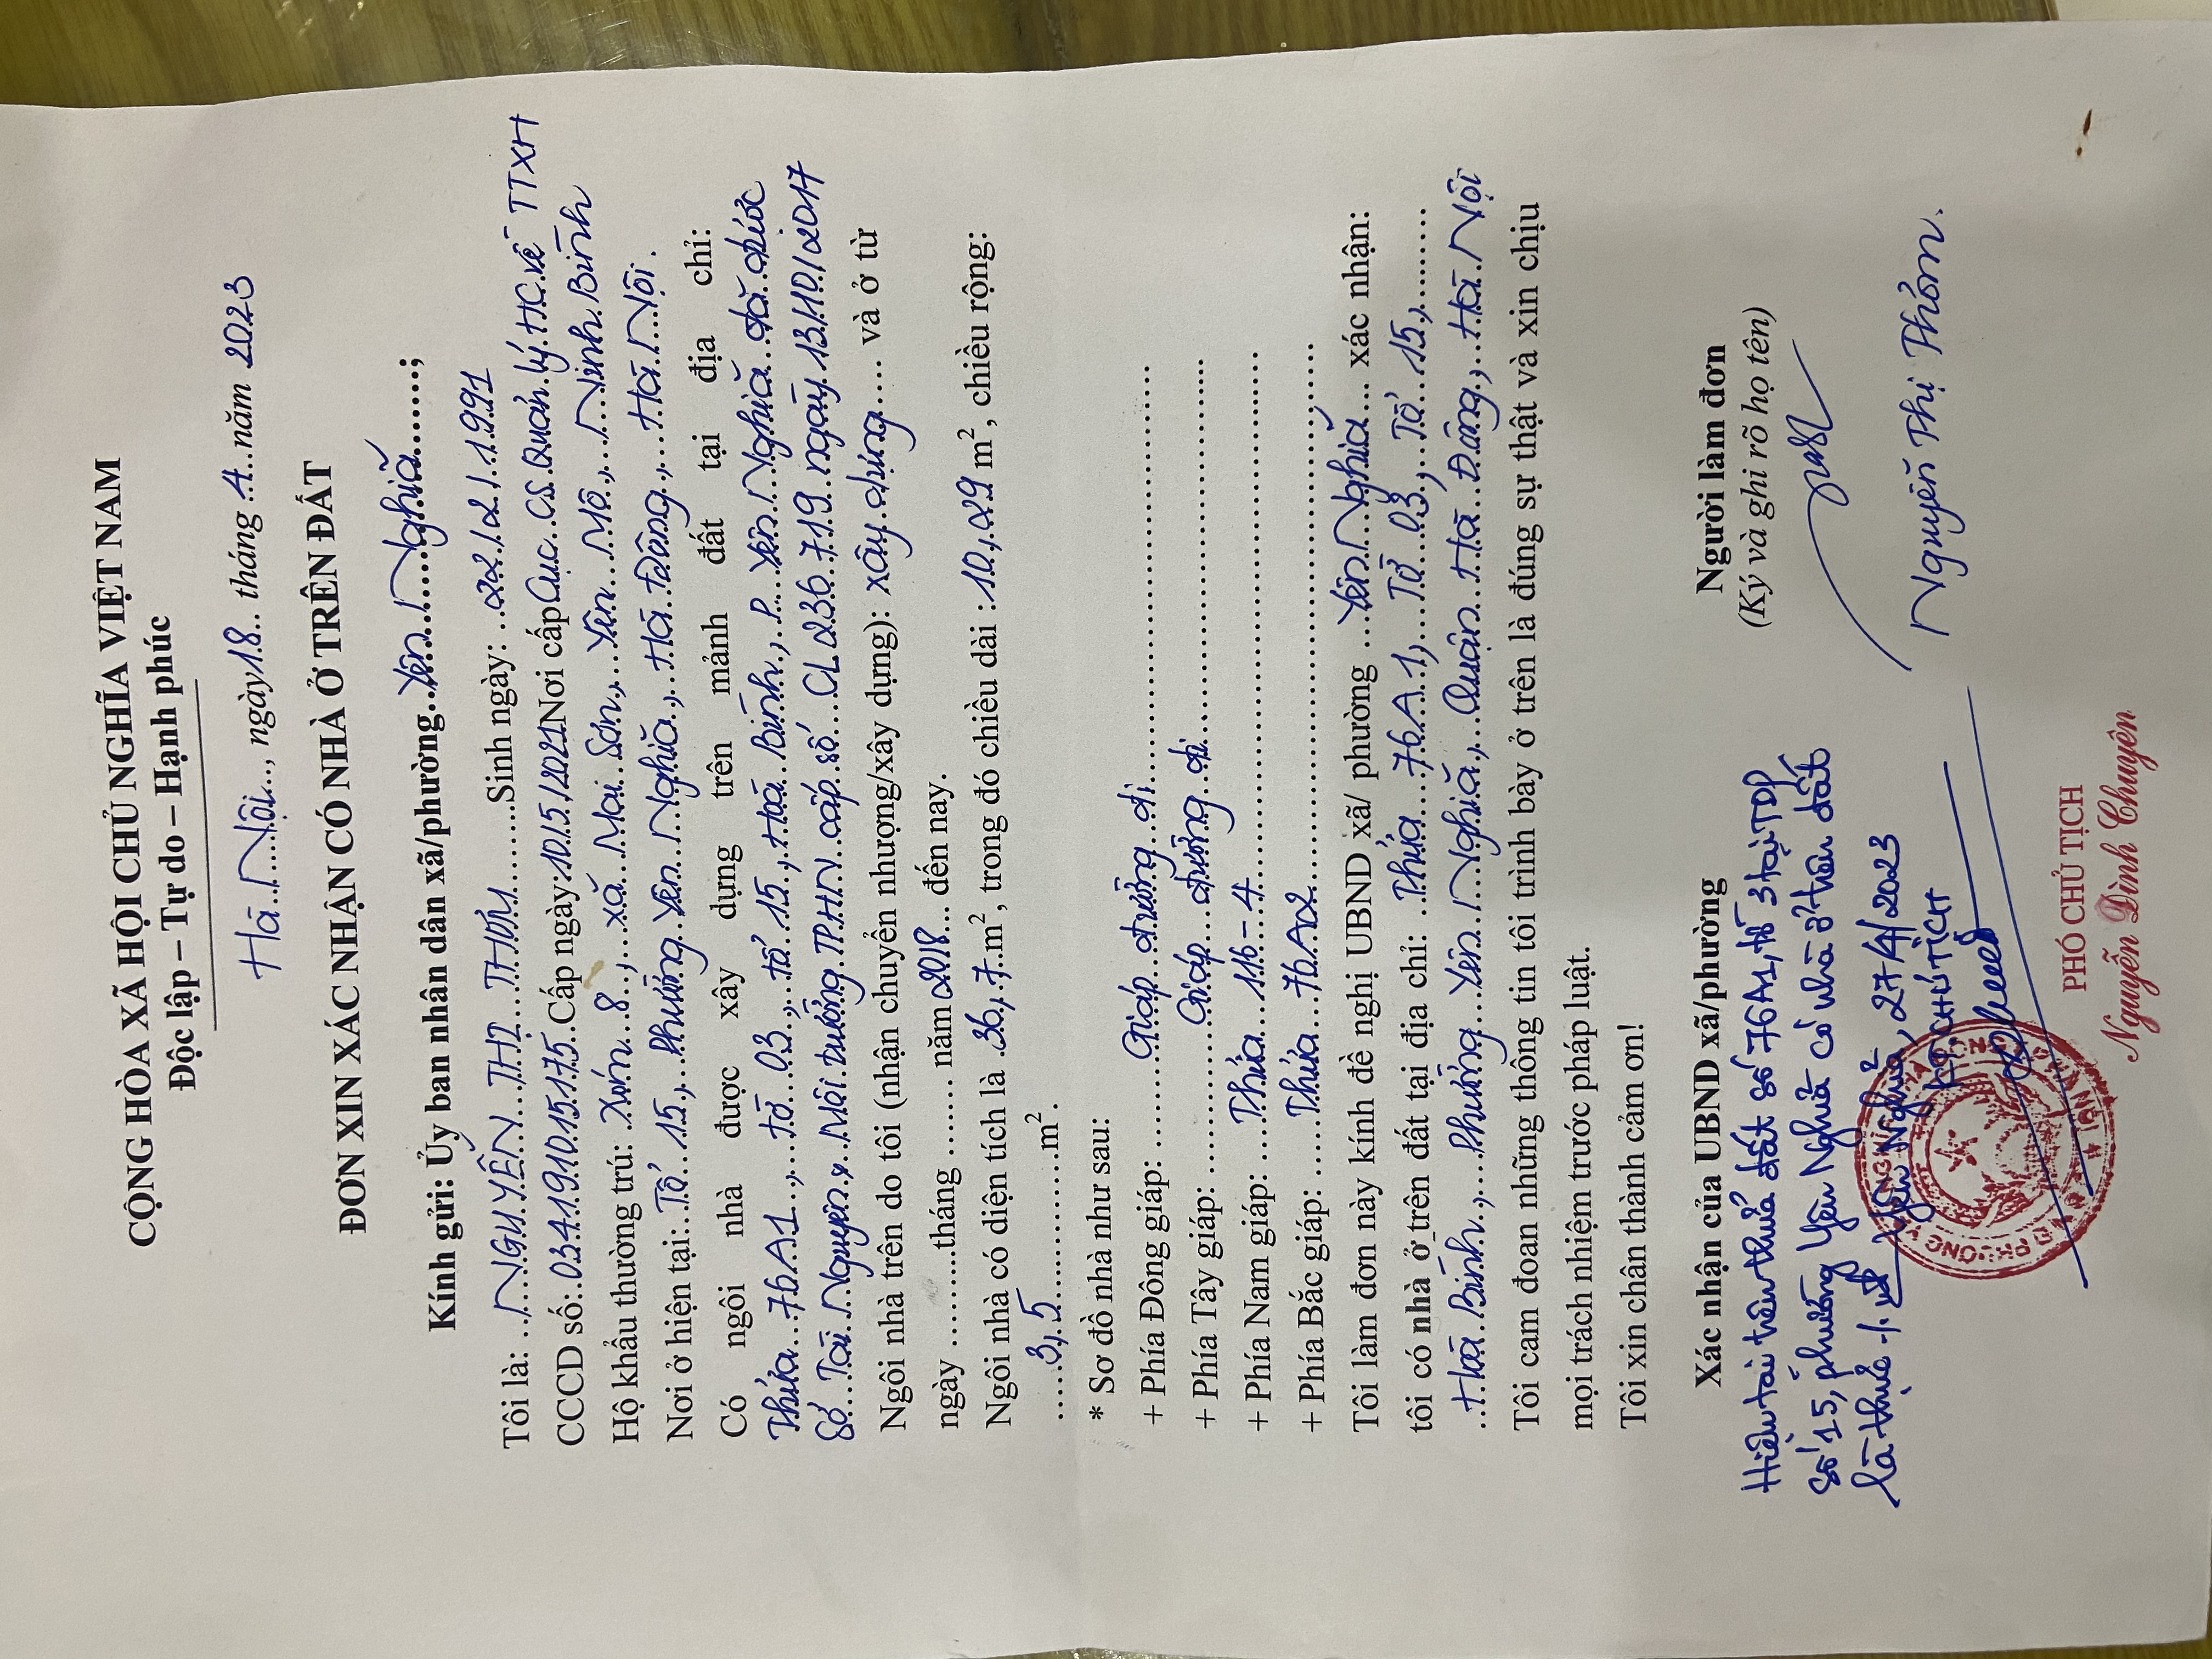 CỘNG HÒA XÃ HỘI CHỦ NGHĨA VIỆT NAM
Độc lập – Tự do – Hạnh phúc
Hà Nội, ngày 18 tháng 4 năm 2023
ĐƠN XIN XÁC NHẬN CÓ NHÀ Ở TRÊN ĐẤT
Kính gửi: Ủy ban nhân dân xã/phường Yên Nghĩa;
Tôi là: NGUYỄN THỊ THƠM Sinh ngày: 22/2/1991
CCCD số: 034191015175 Cấp ngày: 10/5/2021 Nơi cấp Cục CS Quản lý HC về TTXH
Hộ khẩu thường trú: Xóm 8, xã Mai Sơn, Yên Mô, Ninh Bình
Nơi ở hiện tại: Tổ 15, Phường Yên Nghĩa, Hà Đông, Hà Nội.
Có ngôi nhà được xây dựng trên mảnh đất tại địa chỉ:
Thửa 76A1, tờ 03, tổ 15, Hoà Bình, P. Yên Nghĩa đã được
Sở Tài Nguyên & Môi trường TPHN cấp số CL 236 719 ngày 13/10/2017
Ngôi nhà trên do tôi (nhận chuyển nhượng/xây dựng): xây dựng và ở từ
ngày .........tháng ....... năm 2018 đến nay.
Ngôi nhà có diện tích là 36,7 m², trong đó chiều dài : 10,29 m², chiều rộng:
3,5 m².
* Sơ đồ nhà như sau:
+ Phía Đông giáp: Giáp đường đi
+ Phía Tây giáp: Giáp đường đi
+ Phía Nam giáp: Thửa 116-4
+ Phía Bắc giáp: Thửa 76A2
Tôi làm đơn này kính đề nghị UBND xã/ phường Yên Nghĩa xác nhận:
tôi có nhà ở trên đất tại địa chỉ: Thửa 76A1, Tờ 03, Tổ 15,
Hoà Bình, Phường Yên Nghĩa, Quận Hà Đông, Hà Nội
Tôi cam đoan những thông tin tôi trình bày ở trên là đúng sự thật và xin chịu
mọi trách nhiệm trước pháp luật.
Tôi xin chân thành cảm ơn!
Xác nhận của UBND xã/phường
Hiện tại trên thửa đất số 76A1, tờ 3 tại TDP
số 15, phường Yên Nghĩa có nhà ở trên đất
là thực ./.
Yên Nghĩa, 27/4/2023
KT. CHỦ TỊCH
PHÓ CHỦ TỊCH
Nguyễn Đình Chuyên
Người làm đơn
(Ký và ghi rõ họ tên)
Nguyễn Thị Thơm.